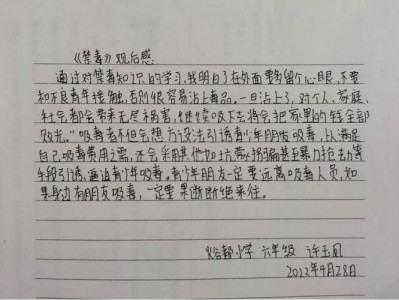 《禁毒》观后感
通过对禁毒知识的学习,我明白了在外面要多留个心眼,不要
和不良青年接触,否则很容易沾上毒品。一旦沾上了,对个人、家庭、
社会都会带来无尽祸害,继续吸下去将会把家里的钱全部
败光。"吸毒者不但会想方设法引诱青少年朋友吸毒,以满足
自己吸毒费用之需,还会采用其他如坑蒙拐骗甚至暴力抢劫等
手段引诱,逼迫青少年吸毒。青少年朋友一定要远离吸毒人员,如
果身边有朋友吸毒,一定要果断断绝来往。
都小学 六年级 许玉凤
2012年4月28日